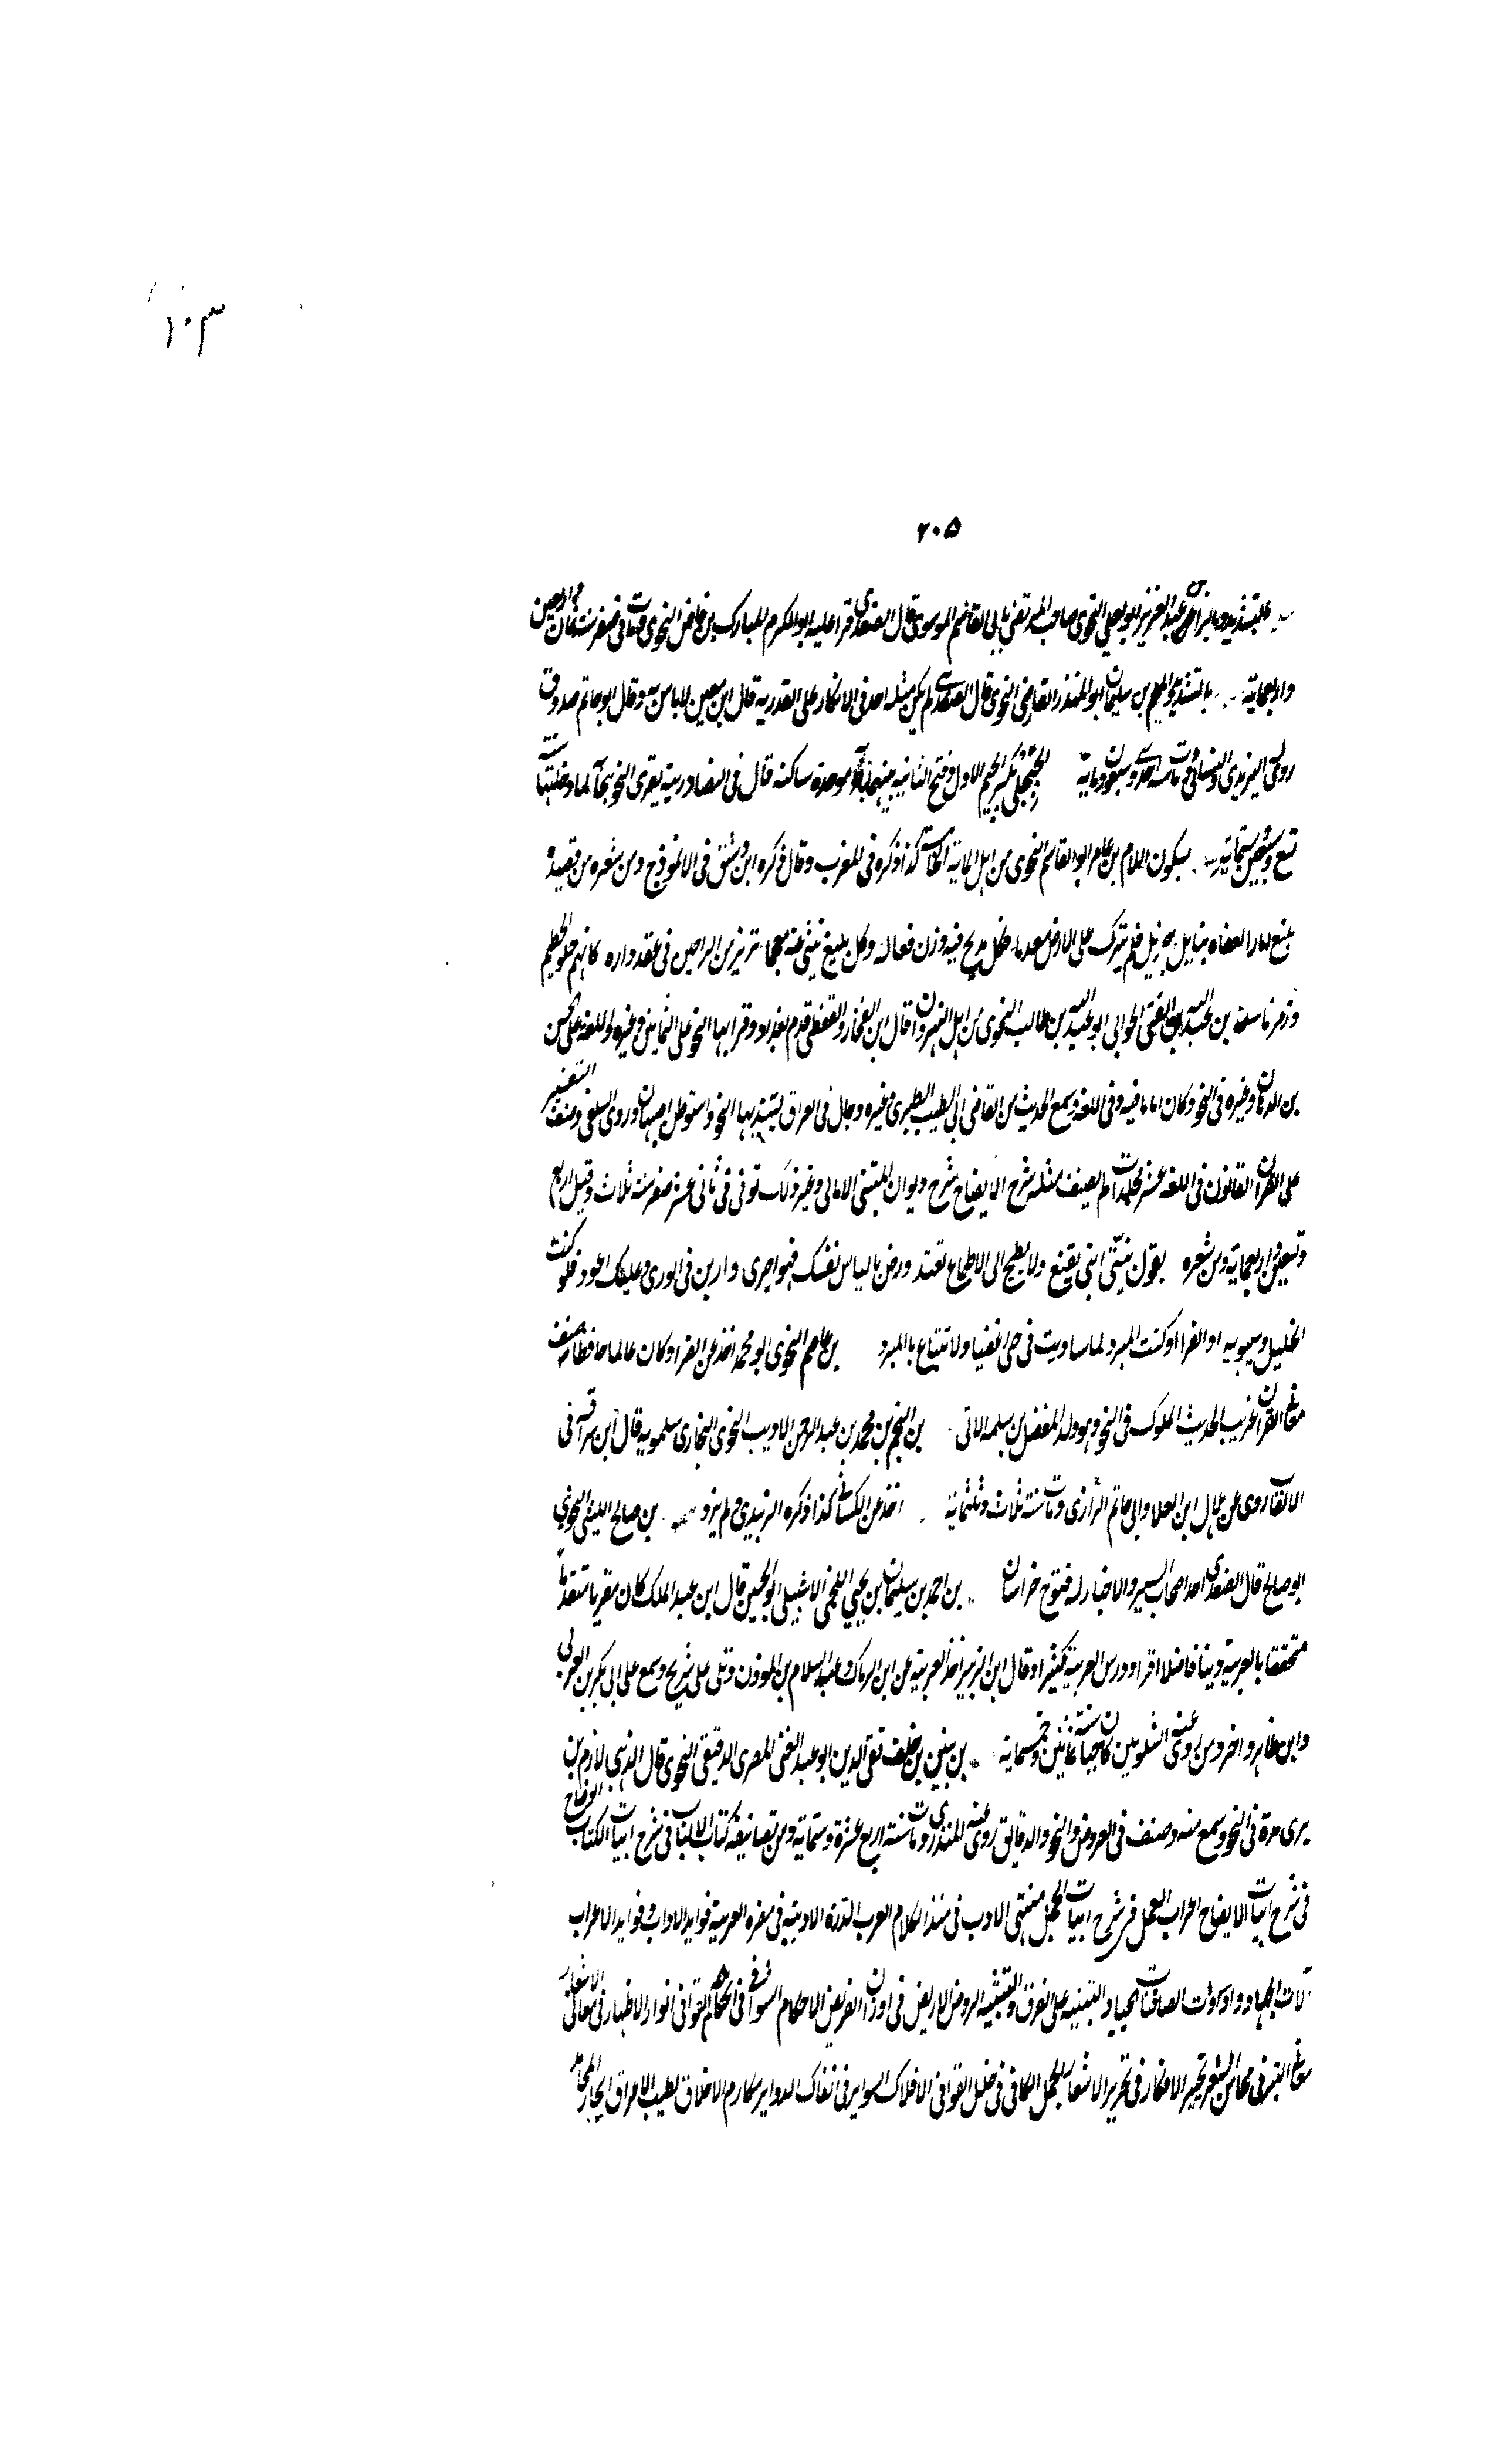 ١٠٣
٢٠٥
عبد العزيز ابو يعلى النحوى صاحب المرتضى ابى القاسم الموسوى قال الصفدى قرا عليه ابو الكرم المبارك بن فاخر النحوى ومات فى صفر سنة ثمان واربعين
واربعماية بالتشديد بن سليمان ابو المنذر القارى النحوى قال الصفدى لم يكن مثله احد فى الانكار على القدرية قال ابن معين لاباس به وقال ابو حاتم صدوق
روى له الترمذى والنسائى ومات سنة احدى وسبعين وماية بكسر الجيم الاولى وفتح الثانية بينهما موحدة ساكنة قال فى يقرى النحو بها لما دخلتها سنة
تسع وستماية بسكون اللام بن ابو القاسم النحوى من اهل الماية كذا ذكره فى المغرب وقال ذكره ابن رشيق فى الانموذج ومن شعره من قصيدة
العفاه بنايل جزيل فلم يترك على الارض معدما فكل مديح فيه دون فعاله وكل بليغ فى عقد داره كانهم
بن عبد الله بن الفتى ابو عبد الله بن طالب النحوى من اهل النهروان قال ابن النجار والقفطى قدم بغداد وقرا بها النحو على الثمانينى وغيره واللغة على الحسن
بن الدهان وغيره فى النحو وكان اماما فيه وفى اللغة وسمع الحديث من القاضى ابى الطيب الطبرى وغيره وجال فى العراق بها النحو واستوطن اصبهان وروى السلفى وصنف التفسير
على القران القانون فى اللغة عشر مجلدات لم يصنف مثله شرح الايضاح شرح ديوان المتنبى الامالى وغير ذلك توفى فى ثانى عشر صفر سنة ثلاث وقيل اربع
وتسعين واربعماية ومن شعره يقول بنيتى ابتى تقنع ولا يطمح الى الاطماع تعتد ورض بالياس نفسك فهو احرى وازين فى الورى وعليك اعود فلو كنت
الخليل وسيبويه او الفرا او كنت المبرد لما ساويت فى حى رغيفا ولا تبتاع بالمبرد بن عاصم النحوى ابو محمد اخذ عن الفرا وكان عالما حافظا صنف
معانى القران غريب الحديث الملوك فى النحو وهو ولد المفضل بن سلمه الاتى بن النجم بن محمد بن عبد الرحمن الاديب النحوى البخارى سلمويه قال ابن سراقه فى
الالقاب روى عن هلال ابن العلا وابى حاتم الرازى ومات سنة ثلاث وثلثماية اخذ عن الكسائى كذا ذكره الزبيدى ولم يزد بن صالح الليثى النحوى
ابو صالح قال الصفدى احد اصحاب السير والاخبار له فتوح خراسان بن احمد بن سليمان بن يحيى اللخمى الاشبيلى ابو الحسين قال ابن عبد الملك كان مقريا متقدما
متحققا بالعربية دينا فاضلا اقرا ودرس العربية كثيرا وقال ابن الزبير اخذ العربية عن ابن الرماك وعبد السلام بن الموذن وتلى على شريح وسمع على ابى بكر بن العربى
وابن طاهر واخرون روى عنه الشلوبين كان حيا سنة ثمانين وخمسماية بن بنين بن خلف تقى الدين ابو عبد الغنى المصرى الدقيقى النحوى قال الذهبى لازم بن
برى مدة فى النحو وسمع منه وصنف فى العروض والنحو والدقايق روى عنه المنذرى ومات سنة اربع عشرة وستماية ومن تصانيفه كتاب لباب الالباب فى شرح ابيات الكتاب الوضاح
فى شرح ابيات الايضاح اعراب العمل فى شرح ابيات الجمل منتهى الادب فى منتها كلام العرب الدرة الادبية فى نصرة العربية فوايد الاداب وقوايد الاعراب
الات الجهاد وادوات الصافنات الجياد التنبيه على الفرق والتشبيه الروض الاريض فى اوزان القريض الاحكام الشوافى فى احكام القوافى انوار الازهار فى معانى الاشعار
معانى التبر فى محاسن الشعر تحبير الافكار فى تحرير الاشعار المجمل الكافى فى خلل القوافى الافلاك السواير فى انفكاك الدواير مكارم الاخلاق لطيب الاعراق ايجاز المحامد